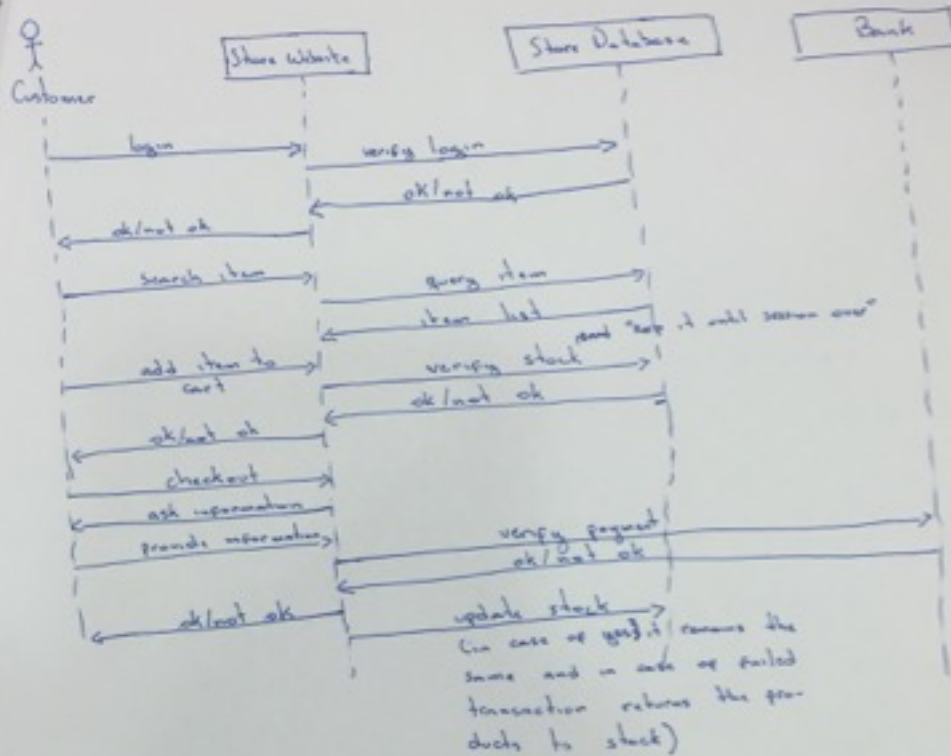 Customer
Store Website
Store Database
Bank
login
verify login
ok/not ok
ok/not ok
search item
query item
item list
and "keep it until session over"
add item to
cart
verify stock
ok/not ok
ok/not ok
checkout
ask information
provide information
verify payment
ok/not ok
ok/not ok
update stock
(in case of yes, it remains the
same and in case of failed
transaction returns the pro-
ducts to stock)